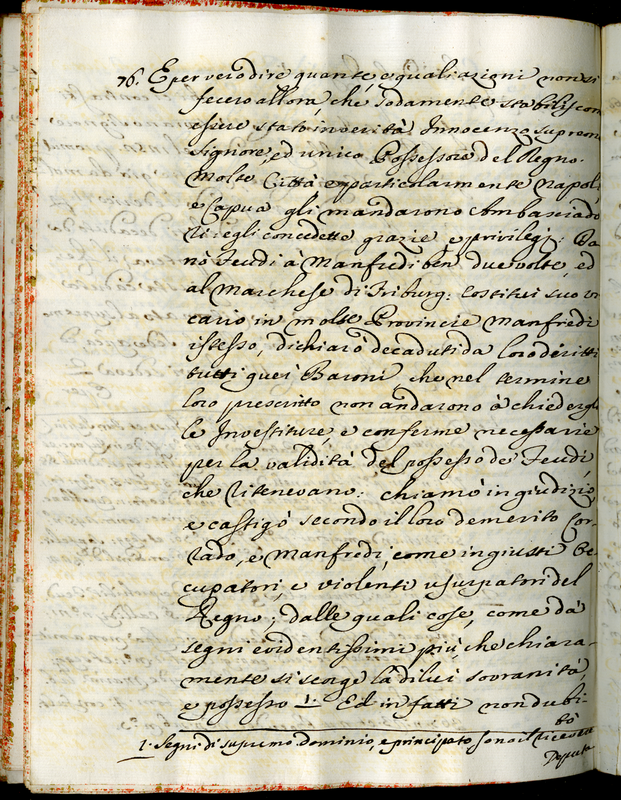 76. E per vero dire quante, e quali azioni non si
fecero allora, che sodamente stabiliscon
essere stato in verità Innocenzo supremo
Signore, ed unico Possessore del Regno.
Molte Città e particolarmente Napoli,
e Capua gli mandarono Ambasciado
ri: egli concedette grazie, e privilegj: Do
nò Feudi à Manfredi ben due volte, ed
al Marchese di Friburg: costituì suo vi
cario in molte Provincie Manfredi
istesso, dichiarò decaduti da loro diritti
tutti quei Baroni che nel termine
loro prescritto non andarono à chiedergli
le Investiture, e conferme necessarie
per la validità del possesso de Feudi,
che ritenevano: chiamò in giudizio,
e castigò secondo il loro demerito Cor
rado, e Manfredi, come ingiusti Oc
cupatori, e violenti usurpatori del
Regno; dalle quali cose, come da
segni evidentissimi più, che chiara-
mente si scorge la di lui sovranità,
e possesso 1. Ed in fatti non dubi-
tò
1. Segni di supremo dominio, e principato sono il ricevere
Deputa